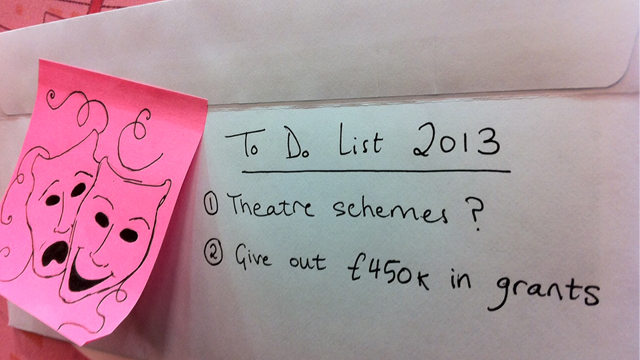 To Do List 2013
① Theatre schemes ?
② Give out £450K in grants